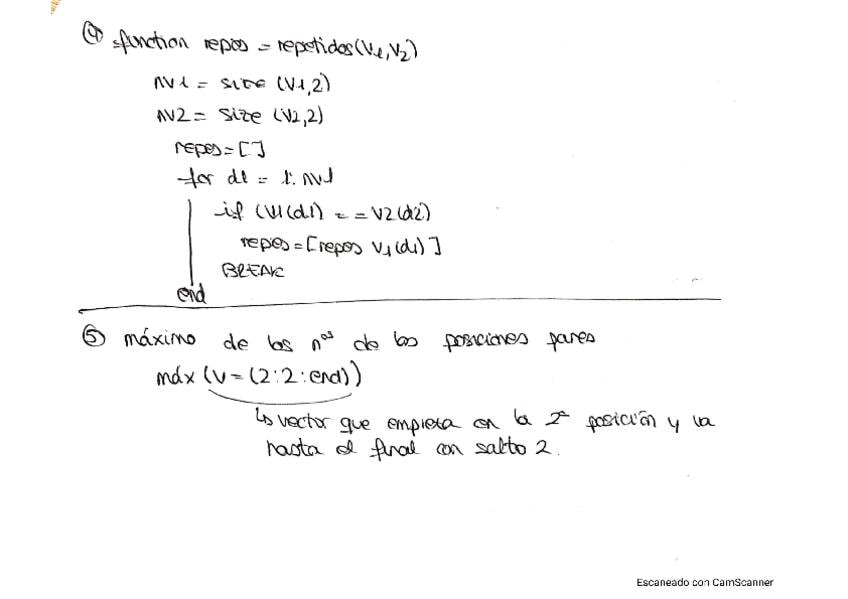 ④ function repos = repetidos(V1,V2)
nv1 = size (V1,2)
nv2 = size (V2,2)
repos=[]
for d1 = 1:nv1
if (V1(d1) == V2(d2)
repos=[repos V1(d1)]
BREAK
end
⑤ máximo de los nos de las posiciones pares
máx (v=(2:2:end))
↳ vector que empieza en la 2ª posición y va
hasta el final con salto 2.
Escaneado con CamScanner